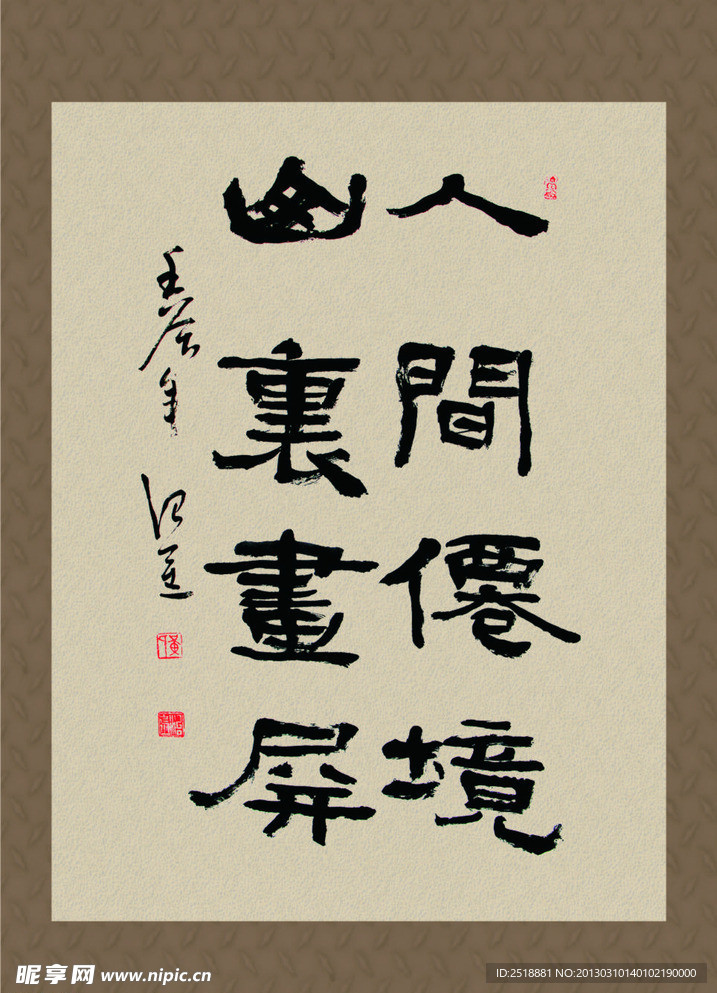 人間僊境
山裏畫屏
壬辰年
昵享网 www.nipic.cn
ID:2518881 NO:20130310140102190000